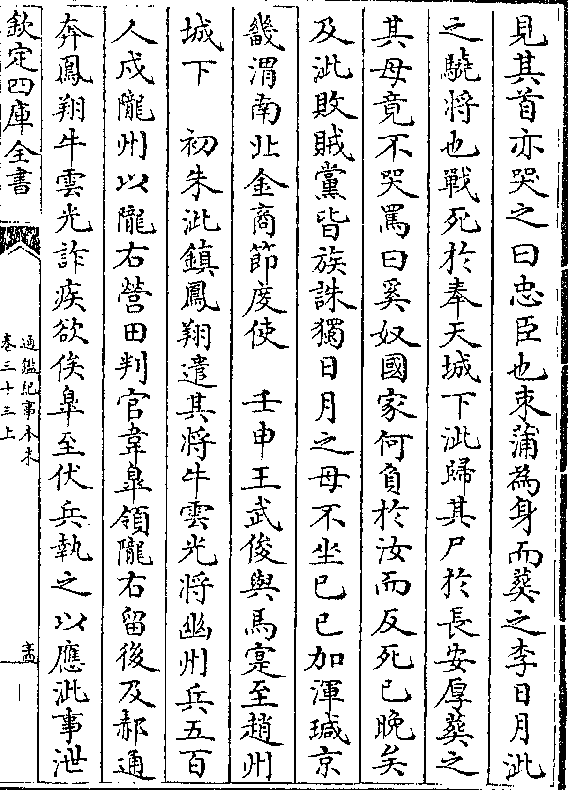 見其首亦哭之曰忠臣也束蒲為身而葬之李日月泚
之驍將也戰死於奉天城下泚歸其尸於長安厚葬之
其母竟不哭罵曰奚奴國家何負於汝而反死已晚矣
及泚敗賊黨皆族誅獨日月之母不坐己巳加渾瑊京
畿渭南北金商節度使　壬申王武俊與馬寔至趙州
城下　初朱泚鎮鳳翔遣其將牛雲光將幽州兵五百
人戍隴州以隴右營田判官韋臯領隴右留後及郝通
奔鳳翔牛雲光詐疾欲俟臯至伏兵執之以應泚事泄
欽定四庫全書
通鑑紀事本末
卷三十三上